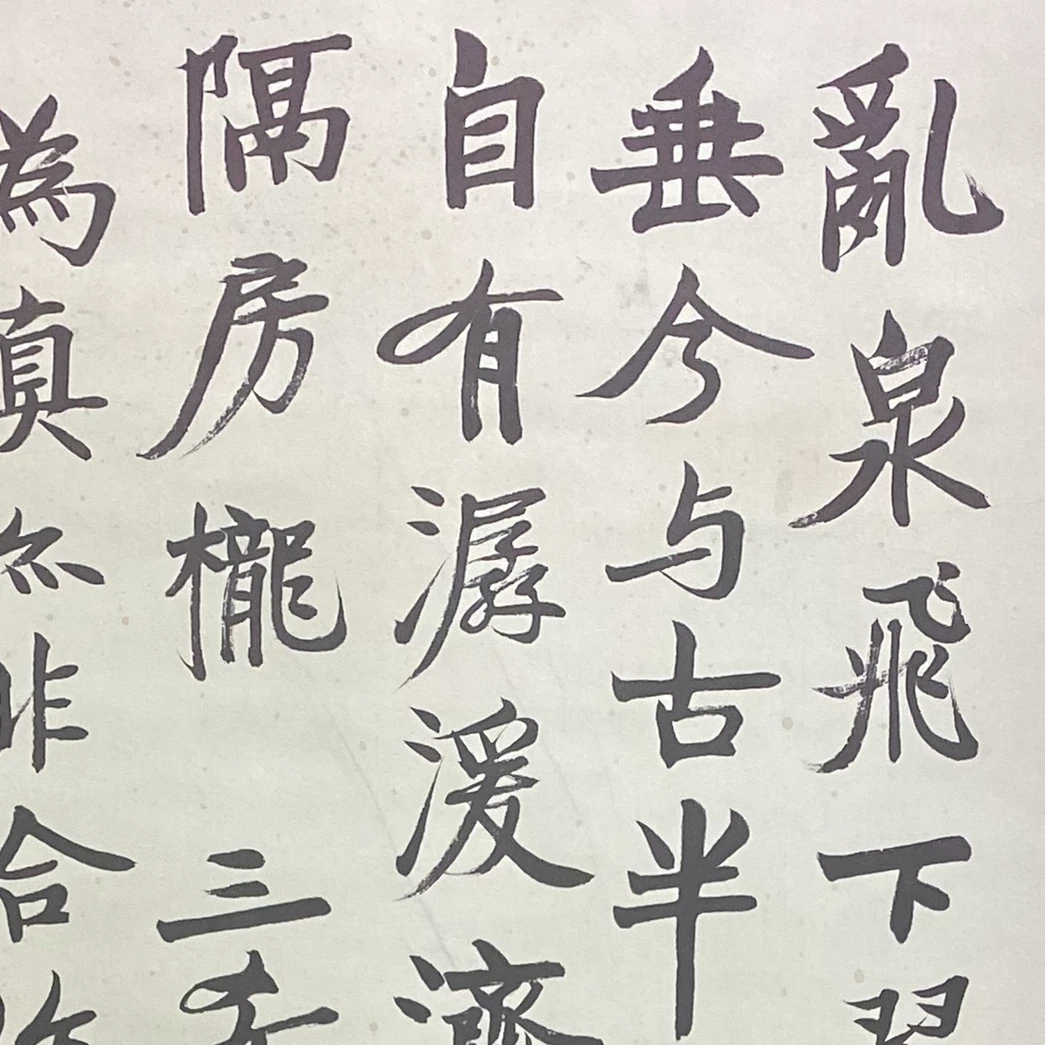 亂泉飛下翠
垂今与古半
自有潺湲濟
隔房櫳三春
為真你非合